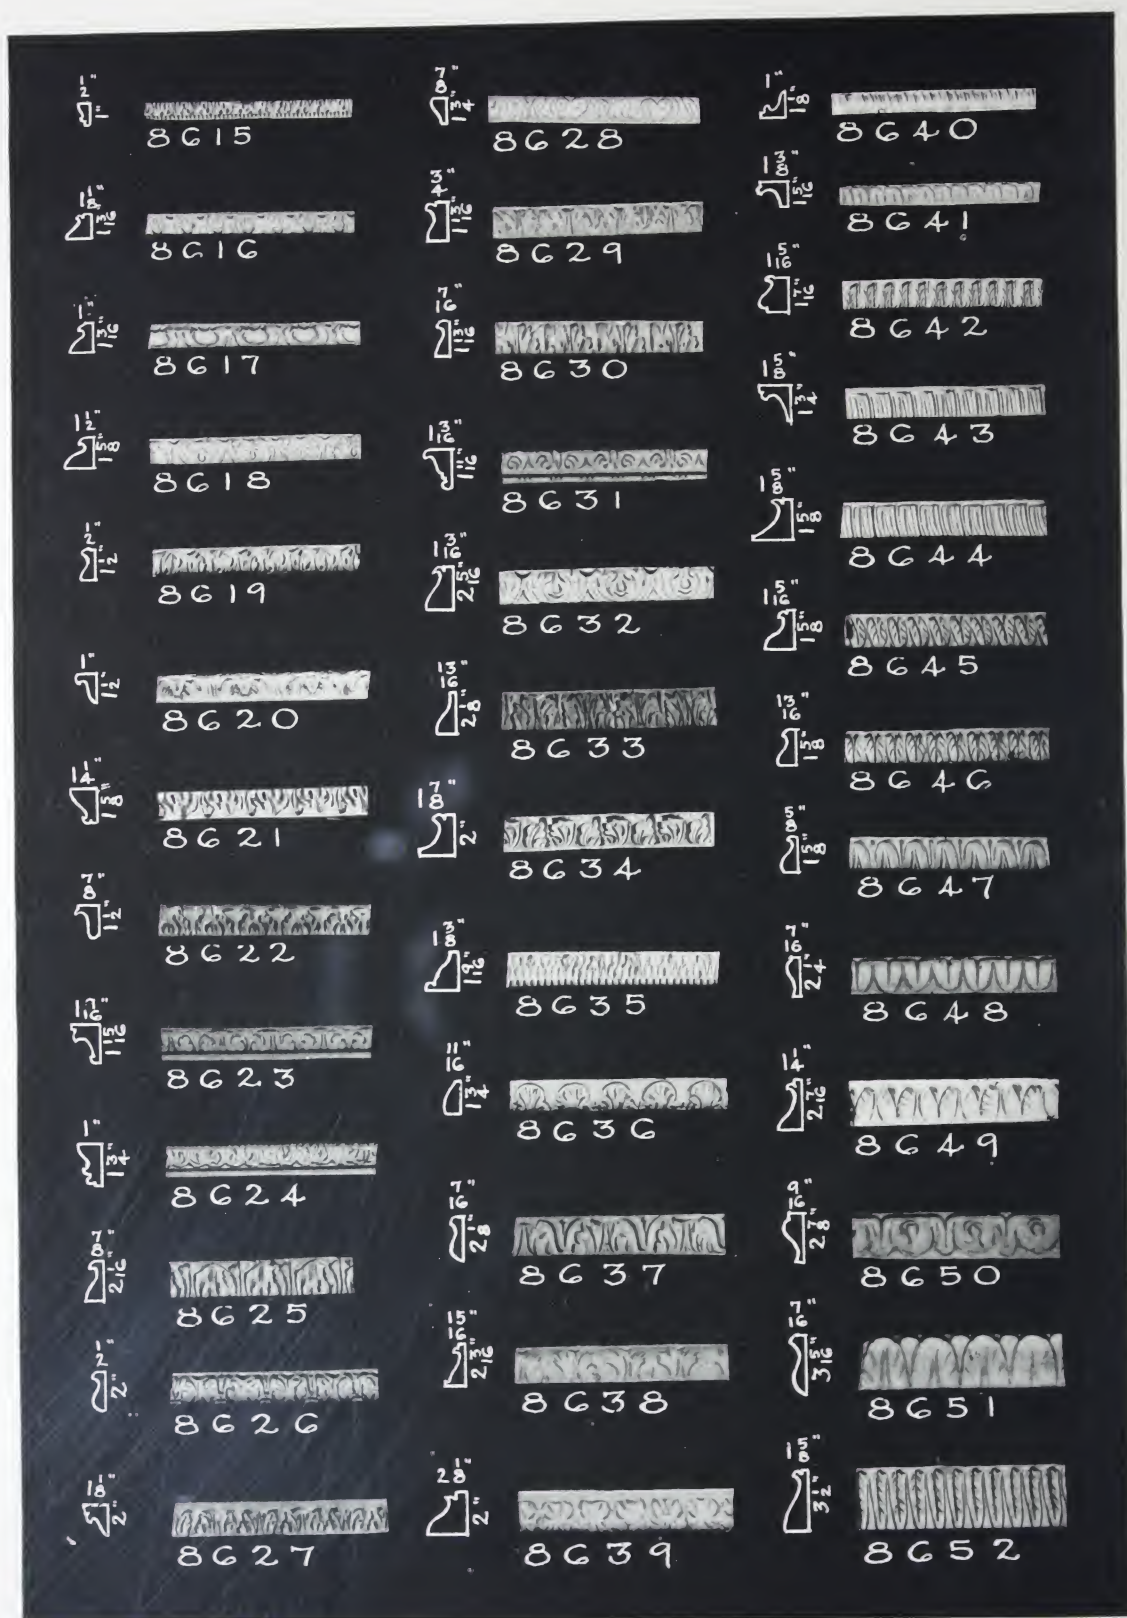 1/2" 1"
8615
1 1/8" 1 3/16"
8616
1" 1 3/16"
8617
1 1/2" 1 5/8"
8618
1/2" 1 1/2"
8619
1" 1 1/2"
8620
1 1/4" 1 5/8"
8621
7/8" 1 1/2"
8622
1 7/16" 1 15/16"
8623
1" 1 3/4"
8624
7/8" 2 1/16"
8625
1/2" 2"
8626
1 1/8" 2"
8627
7/8" 1 3/4"
8628
3/4" 1 13/16"
8629
7/16" 1 13/16"
8630
1 3/16" 1 11/16"
8631
1 3/16" 2 5/16"
8632
13/16" 2 1/8"
8633
1 7/8" 2"
8634
1 3/8" 1 9/16"
8635
11/16" 1 3/4"
8636
7/16" 2 1/8"
8637
15/16" 2 3/16"
8638
2 1/8" 2"
8639
1" 1 1/8"
8640
1 3/8" 1 5/16"
8641
1 5/16" 1 7/16"
8642
1 5/8" 1 3/4"
8643
1 5/8" 1 5/8"
8644
1 5/16" 1 5/8"
8645
13/16" 1 5/8"
8646
5/8" 1 5/8"
8647
7/16" 2 1/4"
8648
1 1/4" 2 7/16"
8649
9/16" 2 7/8"
8650
7/16" 3 5/16"
8651
1 5/8" 3 1/2"
8652